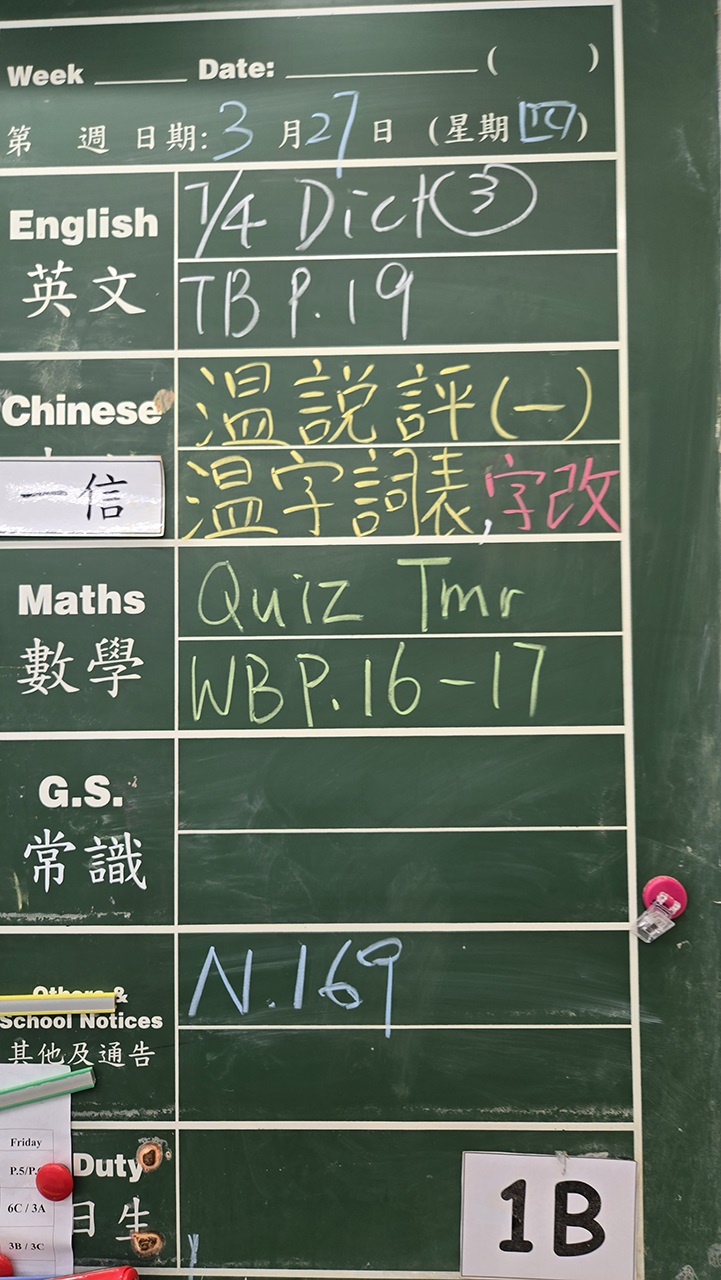 Week ______ Date: ____________ (    )
第 週 日期: 3 月 27 日 (星期四)
English
英文
7/4 Dict ③
TB P.19
Chinese
温説評(一)
一信
温字詞表,字改
Maths
數學
Quiz Tmr
WB P.16-17
G.S.
常識
Others &
School Notices
其他及通告
N.169
Friday
P.5/P.
6C / 3A
3B / 3C
Duty
日生
1B